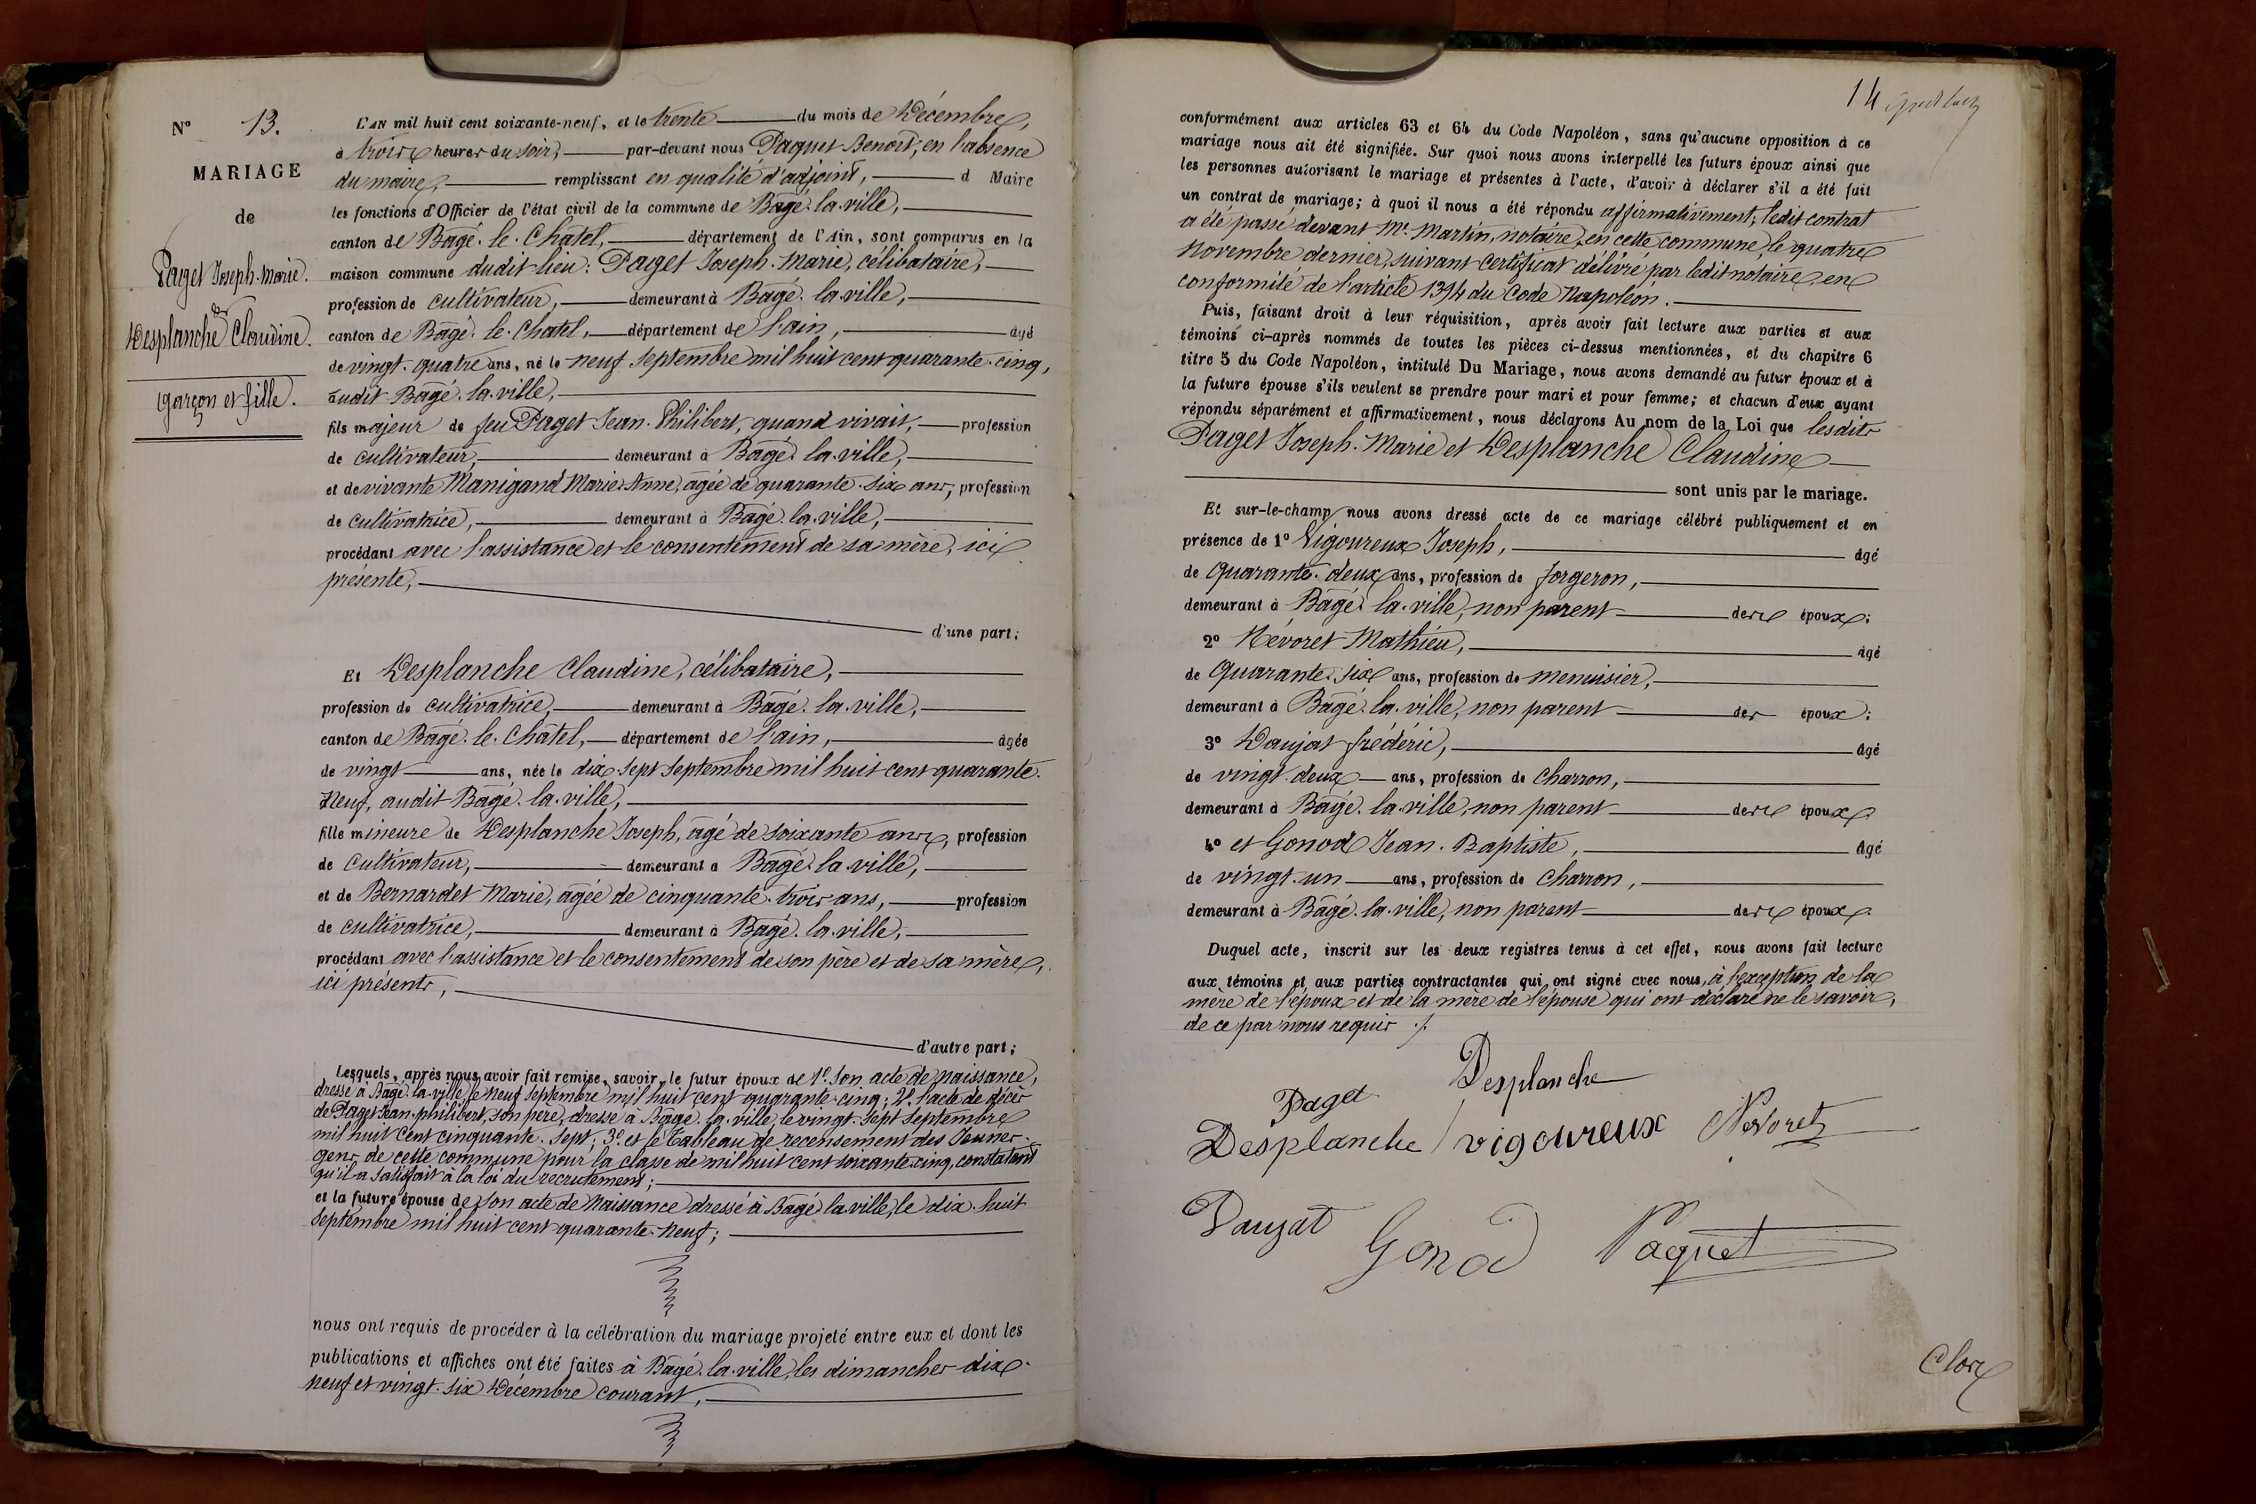 N° 13.
MARIAGE
de
Paget Joseph-Marie.
et
Desplanche Claudine.
garçon et fille.
L'AN mil huit cent soixante-neuf, et le trente du mois de Décembre,
à trois heures du soir, par-devant nous Paquet Benoît, en l'absence
du maire, remplissant en qualité d'adjoint, d Maire
les fonctions d'Officier de l'état civil de la commune de Bagé-la-ville,
canton de Bagé-le-Châtel, département de l'Ain, sont comparus en la
maison commune dudit lieu: Paget Joseph-Marie, célibataire,
profession de cultivateur, demeurant à Bagé-la-ville,
canton de Bagé-le-Chatel, département de l'ain, âgé
de vingt-quatre ans, né le neuf Septembre mil huit cent quarante-cinq,
audit Bagé-la-ville,
fils majeur de feu Paget Jean-Philibert, quand vivait, profession
de cultivateur, demeurant à Bagé-la-ville,
et de vivante Manigand Marie-Anne, âgée de quarante-six ans, profession
de cultivatrice, demeurant à Bagé-la-ville,
procédant avec l'assistance et le consentement de sa mère, ici
présente,
d'une part;
Et Desplanche Claudine, célibataire,
profession de cultivatrice, demeurant à Bagé-la-ville,
canton de Bagé-le-Châtel, département de l'ain, âgée
de vingt ans, née le dix-sept Septembre mil huit cent quarante-
neuf, audit Bagé-la-ville,
fille mineure de Desplanche Joseph, âgé de soixante ans, profession
de cultivateur, demeurant à Bagé-la-ville,
et de Bernardet Marie, âgée de cinquante-trois ans, profession
de cultivatrice, demeurant à Bagé-la-ville,
procédant avec l'assistance et le consentement de son père et de sa mère,
ici présents,
d'autre part;
Lesquels, après nous avoir fait remise, savoir, le futur époux de 1° Son acte de naissance,
dressé à Bagé-la-ville, le neuf Septembre mil huit cent quarante-cinq; 2° l'acte de décès
de Paget Jean-philibert, son père, dressé à Bagé-la-ville, le vingt-sept Septembre
mil huit cent cinquante-sept; 3° et le Tableau de recensement des Jeunes-
gens de cette commune pour la classe de mil huit cent soixante-cinq, constatant
qu'il a satisfait à la loi du recrutement;
et la future épouse de son acte de Naissance dressé à Bagé-la-ville, le dix-huit
Septembre mil huit cent quarante-neuf;
nous ont requis de procéder à la célébration du mariage projeté entre eux et dont les
publications et affiches ont été faites à Bagé-la-ville, les dimanches dix-
neuf et vingt-six Décembre courant,
14
conformément aux articles 63 et 64 du Code Napoléon, sans qu'aucune opposition à ce
mariage nous ait été signifiée. Sur quoi nous avons interpellé les futurs époux ainsi que
les personnes autorisant le mariage et présentes à l'acte, d'avoir à déclarer s'il a été fait
un contrat de mariage; à quoi il nous a été répondu affirmativement; ledit contrat
a été passé devant Mr. Martin, notaire, en cette commune, le quatre
Novembre dernier, suivant certificat délivré par ledit notaire, en
conformité de l'article 1394 du Code Napoléon.
Puis, faisant droit à leur réquisition, après avoir fait lecture aux parties et aux
témoins ci-après nommés de toutes les pièces ci-dessus mentionnées, et du chapitre 6
titre 5 du Code Napoléon, intitulé Du Mariage, nous avons demandé au futur époux et à
la future épouse s'ils veulent se prendre pour mari et pour femme; et chacun d'eux ayant
répondu séparément et affirmativement, nous déclarons Au nom de la Loi que lesdits
Paget Joseph-Marie et Desplanche Claudine
sont unis par le mariage.
Et sur-le-champ nous avons dressé acte de ce mariage célébré publiquement et en
présence de 1° Vigoureux Joseph, âgé
de Quarante-deux ans, profession de forgeron,
demeurant à Bagé-la-ville, non parent des époux;
2° Névoret Mathieu, âgé
de Quarante-six ans, profession de menuisier,
demeurant à Bagé-la-ville, non parent des époux;
3° Daujat frédéric, âgé
de vingt-deux ans, profession de charron,
demeurant à Bagé-la-ville, non parent des époux
4° et Gonod Jean-Baptiste, âgé
de vingt-un ans, profession de charron,
demeurant à Bagé-la-ville, non parent des époux
Duquel acte, inscrit sur les deux registres tenus à cet effet, nous avons fait lecture
aux témoins et aux parties contractantes qui ont signé avec nous, à l'exception de la
mère de l'époux et de la mère de l'épouse qui ont déclaré ne le savoir,
de ce par nous requis ./.
Desplanche
Paget
Desplanche vigoureux Nevoret
Daujat Gonod Paquet
Clos